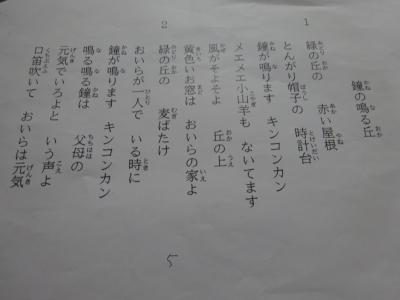 鐘の鳴る丘
1
緑の丘の 赤い屋根
とんがり帽子の 時計台
鐘が鳴ります キンコンカン
メエメエ小山羊も ないてます
風がそよそよ 丘の上
黄色いお窓は おいらの家よ
2
緑の丘の 麦ばたけ
おいらが一人で いる時に
鐘が鳴ります キンコンカン
鳴る鳴る鐘は 父母の
元気でいろよと いう声よ
口笛吹いて おいらは元気
5